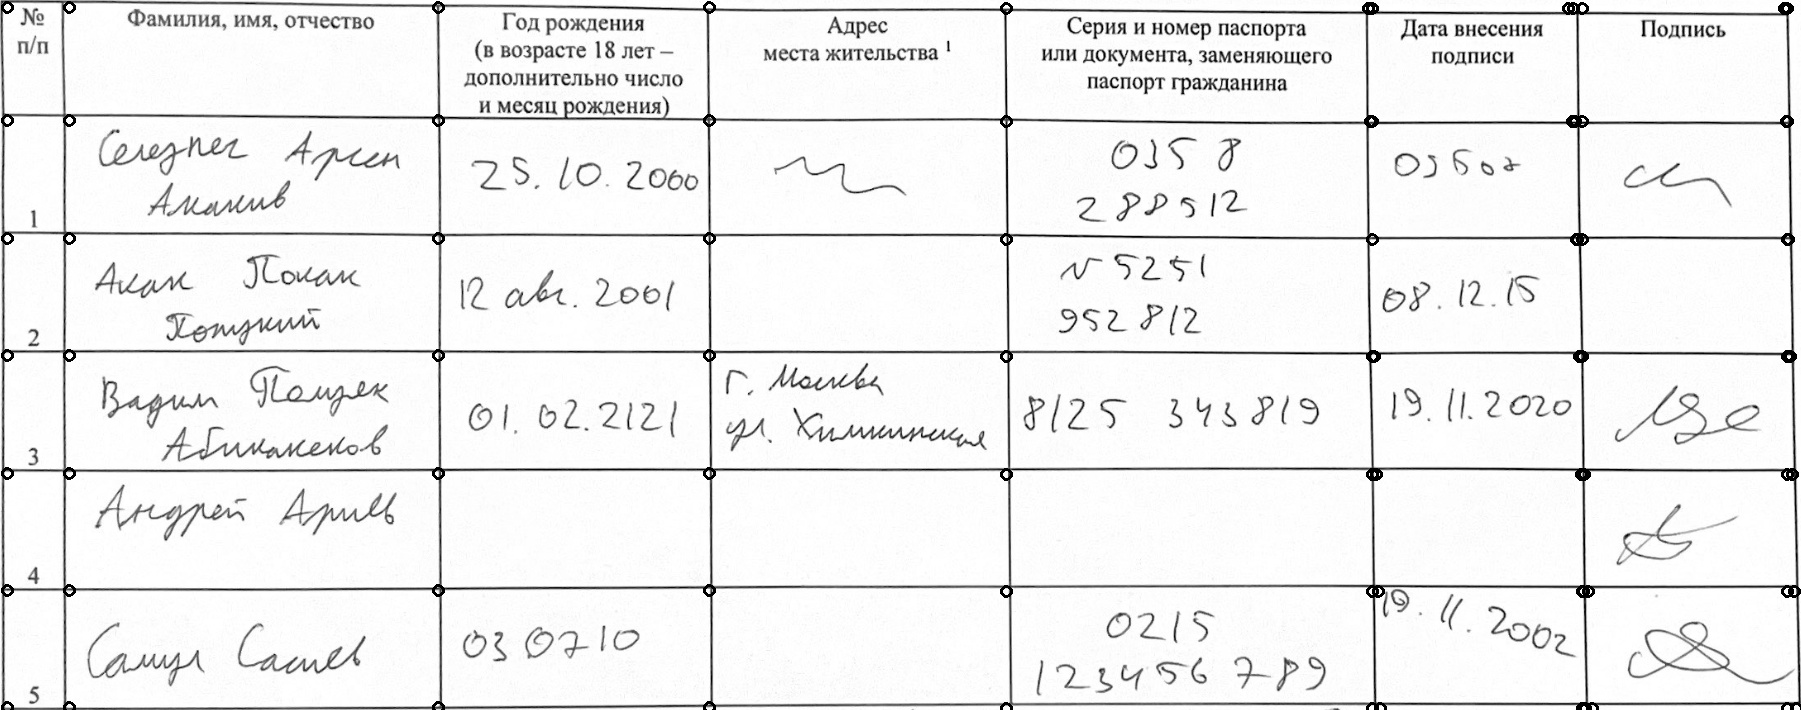 № п/п
Фамилия, имя, отчество
Год рождения
(в возрасте 18 лет –
дополнительно число
и месяц рождения)
Адрес
места жительства 1
Серия и номер паспорта
или документа, заменяющего
паспорт гражданина
Дата внесения
подписи
Подпись
1
Арсен
25.10.2000
0358
288512
2
Акак Полак
12 авг. 2001
N 5251
952812
08.12.15
3
Вадим
Абикакеков
01.02.2121
г. Москва
ул. Химкинская
8125 343819
19.11.2020
4
Андрей
5
030710
0215
123456789
19.11.2002